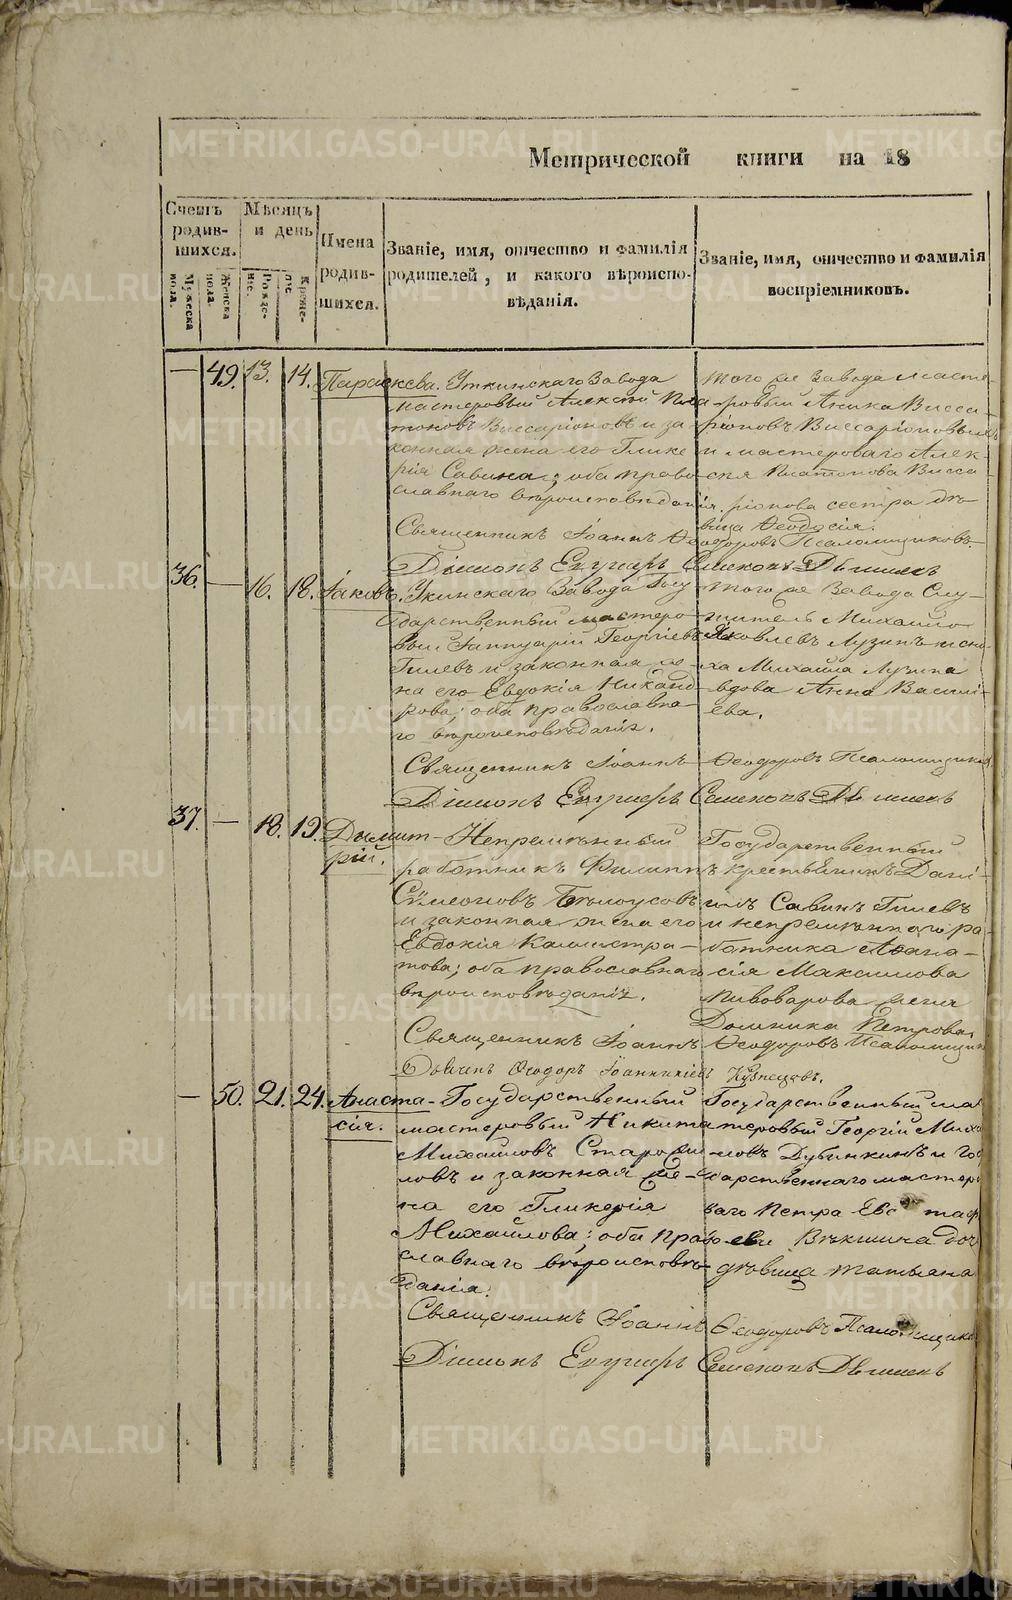 Метрической книги на 18
Счетъ родив-шихся.
Мужеска пола.
Женска пола.
Мѣсяцъ и день
Рожде-нія.
Креще-нія.
Имена родив-шихся.
Званіе, имя, отчество и фамилія родителей, и какого вѣроиспо-вѣданія.
Званіе, имя, отчество и фамилія воспріемниковъ.
— 49. 13. 14. Параскева.
Уткинскаго Завода
мастеровый Алексѣй Пла-
тоновъ Виссаріоновъ и за-
конная жена его Глике-
рія Савина; оба право-
славнаго вѣроисповѣданія.
того же завода масте-
ровый Аника Висса-
ріоновъ Виссаріоновыхъ
и мастероваго Алек-
сія Платонова Висса-
ріонова сестра дѣ-
вица Ѳеодосія.
Священникъ Іоаннъ Ѳеодоровъ Псаломщиковъ.
Діаконъ
36. — 16. 18. Іаковъ.
Уткинскаго Завода Госу-
дарственный мастеро-
вый Іаннуарій Георгіевъ
Гилевъ и законная же-
на его Евдокія Никанд-
рова; оба православна-
го вѣроисповѣданія.
того же Завода Слу-
житель Михайло
Яковлевъ Лузинъ и сно-
ха Михайла Лузина
вдова Анна Василі-
ева.
Священникъ Іоаннъ Ѳеодоровъ Псаломщиковъ
Діаконъ
37. — 18. 19. Димит-
рій.
Непремѣнный
работникъ Филиппъ
Симеоновъ Бѣлоусовъ
и законная жена его
Евдокія Каллистра-
това; оба православнаго
вѣроисповѣданія.
Государственный
крестьянинъ Дані-
илъ Савинъ Гилевъ
и непремѣннаго ра-
ботника Аѳана-
сія Максимова
Пивоварова жена
Домника Петрова.
Священникъ Іоаннъ Ѳеодоровъ Псаломщик
Ѳеодоръ Іоанникіевъ Кузнецовъ.
— 50. 21. 24. Анаста-
сія.
Государственный
мастеровый Никита
Михайловъ Старожи-
ловъ и законная же-
на его Гликерія
Михайлова; оба право-
славнаго вѣроисповѣ-
данія.
Государственный мас
теровый Георгій Миха
ловъ Дубинкинъ и Го
дарственнаго мастеро
ваго Петра Евстаф
еви Вѣкшина доч
дѣвица Татьяна
Священникъ Іоаннъ Ѳеодоровъ Псаломщико
Діаконъ
METRIKI.GASO-URAL.RU